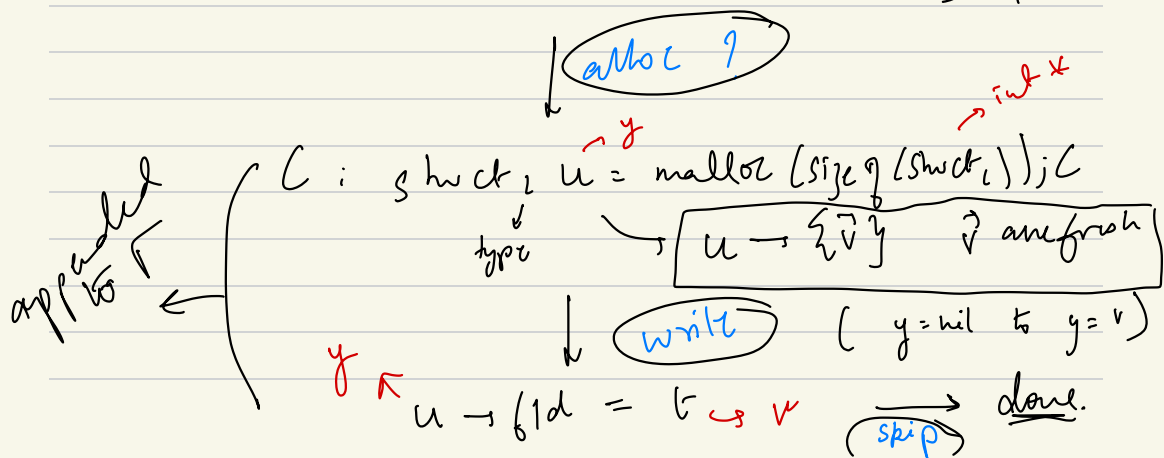 alloc ?
int *
y
C : struct, u = malloc (size of (struct,)); C
type
u → {v⃗} v⃗ are fresh
appended to Γ
write
( y = nil to y = v )
y
u → fld = t ↪ v → done.
skip